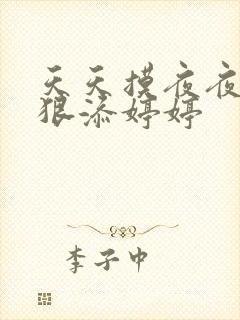 天天摸夜夜
狠添婷婷
李子中